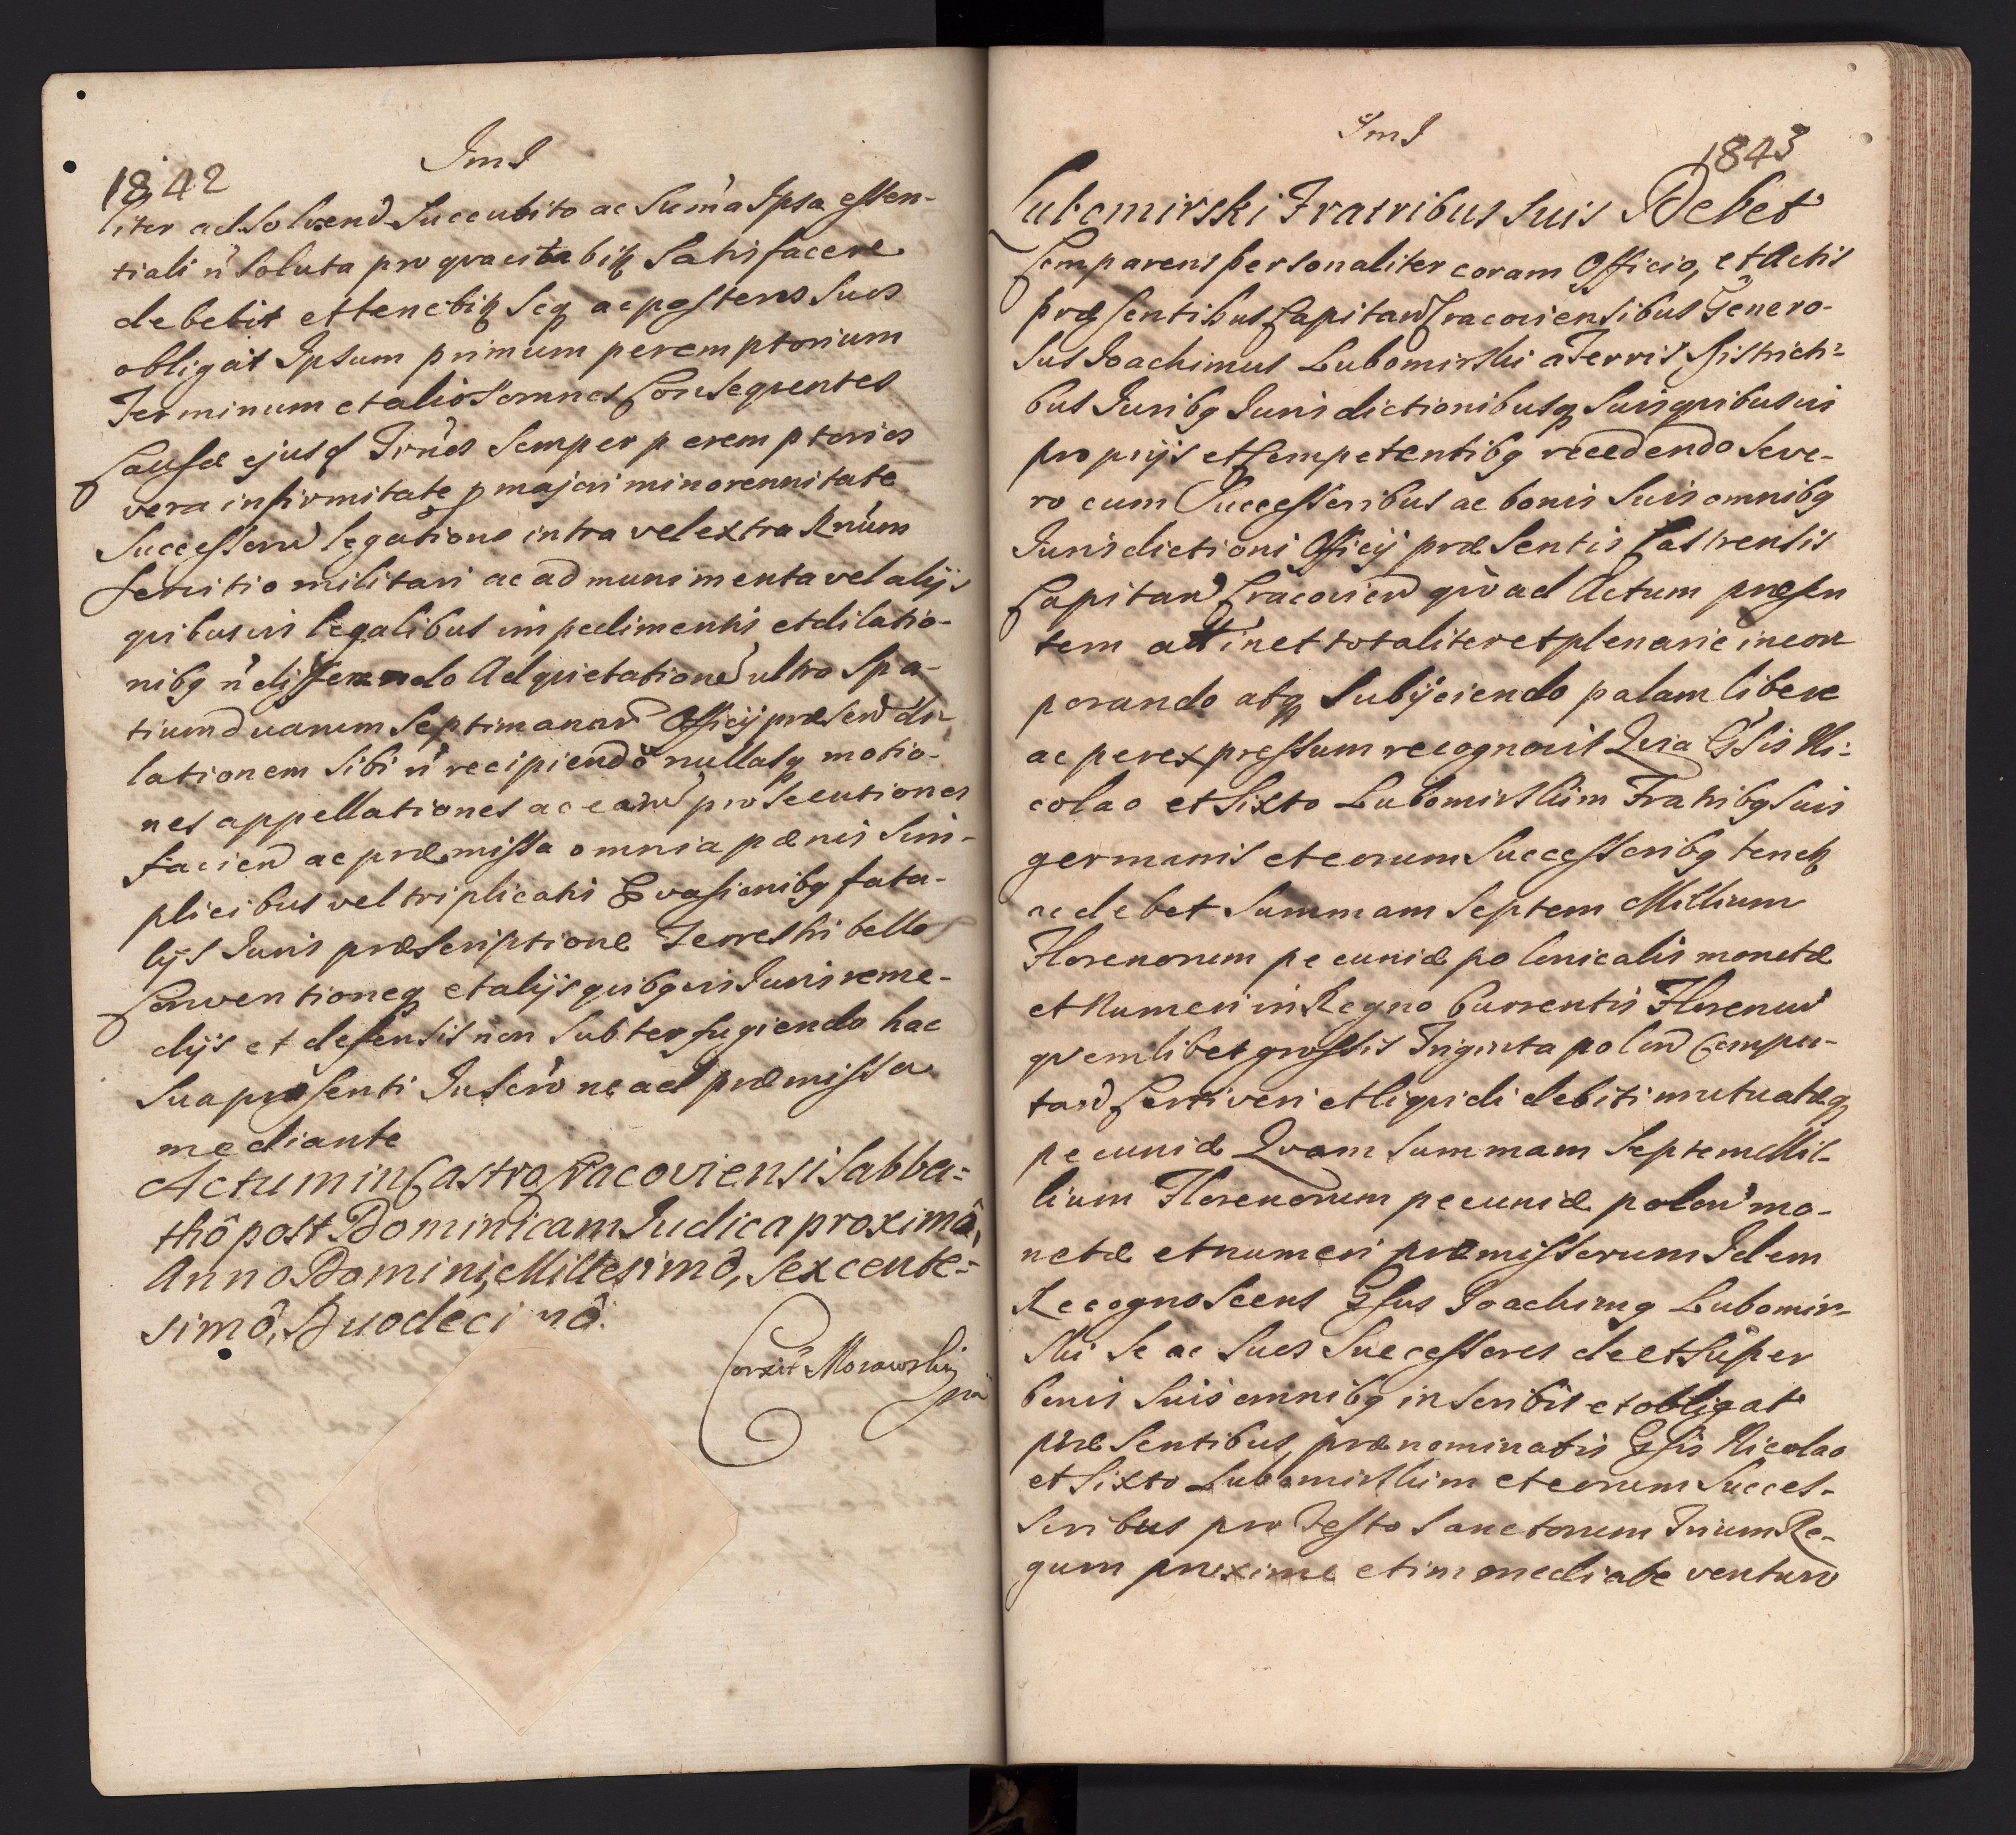 1842
ImI
liter ad Solvend Succubito ac Sum̃a Ipsa essen-
tiali ñ Soluta pro qua citabitʒ Satisfacere
debebit et tenebitʒ Seqʒ ac posteros Suos
obligat Ipsum primum peremptorium
Terminum et alios omnes Consequentes
Causæ ejusd Trñes Semper peremptorios
vera infirmitate p majori minorennitate
Successorũ legatione intra vel extra Rnũm
Servitio militari ac ad munimenta vel alijs
quibusvis legalibus impedimentis et dilatio-
nibq ñ differendo Ad quietationẽ ultro Spa-
tium duarum Septimanarũ Officij præsen di-
lationem Sibi ñ recipiendo nullasqʒ motio-
nes appellationes ac earũ prosecutiones
faciend ac præmissa omnia pænis Sim-
plicibus vel triplicatis Evasionibq fata-
lijs Juris præscriptione Terrestri bello
Conventioneqʒ et alijs quibqvis Juris reme-
dijs et defensis non Subterfugiendo hac
Sua præsenti Inscrõne ad præmissa
mediante
Actum in Castro Cracoviensi Sabba=
thô post Dominicam Judica proximô,
Anno Domini, Millesimô, Sexcente=
simô, Duodecimô.
Corxit Morawski
mã
ImI
1843
Lubomirski Fratribus Suis Debet
Comparens personaliter coram Officio, et Actis
præsentibus Capitan Cracoviensibus Genero-
sus Joachimus Lubomirski a Terris Districti=
bus Juribq Jurisdictionibusqʒ Suis quibusvis
proprijs et Competentibq recedendo Seve-
ro cum Successoribus ac bonis Suis omnibq
Jurisdictioni Officij præsentis Castrensis
Capitan Cracovien quo ad Actum præsen
tem attinet totaliter et plenarie incor
porando atqʒ Subijciendo palam libere
ac per expressum recognovit Quia Gsis Ni=
colao et Sixto Lubomirskim Fratribq Suis
germanis et eorum Successoribq tenetʒ
ac debet Summam Septem Millium
Florenorum pecuniæ polonicalis monetæ
et Numeri in Regno Currentis Florenũ
quemlibet grossis Triginta polon Compu-
tand Certi veri et liquidi debiti mutuatæqʒ
pecuniæ Quam Summam Septem Mil-
lium Florenorum pecuniæ polon mo-
netæ et numeri præmissorum Idem
Recognoscens Gsus Joachimq Lubomir-
ski Se ac Suos Successores de et Super
bonis Suis omnibq inscribit et obligat
præsentibus, prænominatis Gsis Nicolao
et Sixto Lubomirskim et eorum Succes-
soribus pro Festo Sanctorum Trium Re-
gum proxime et immediate venturo